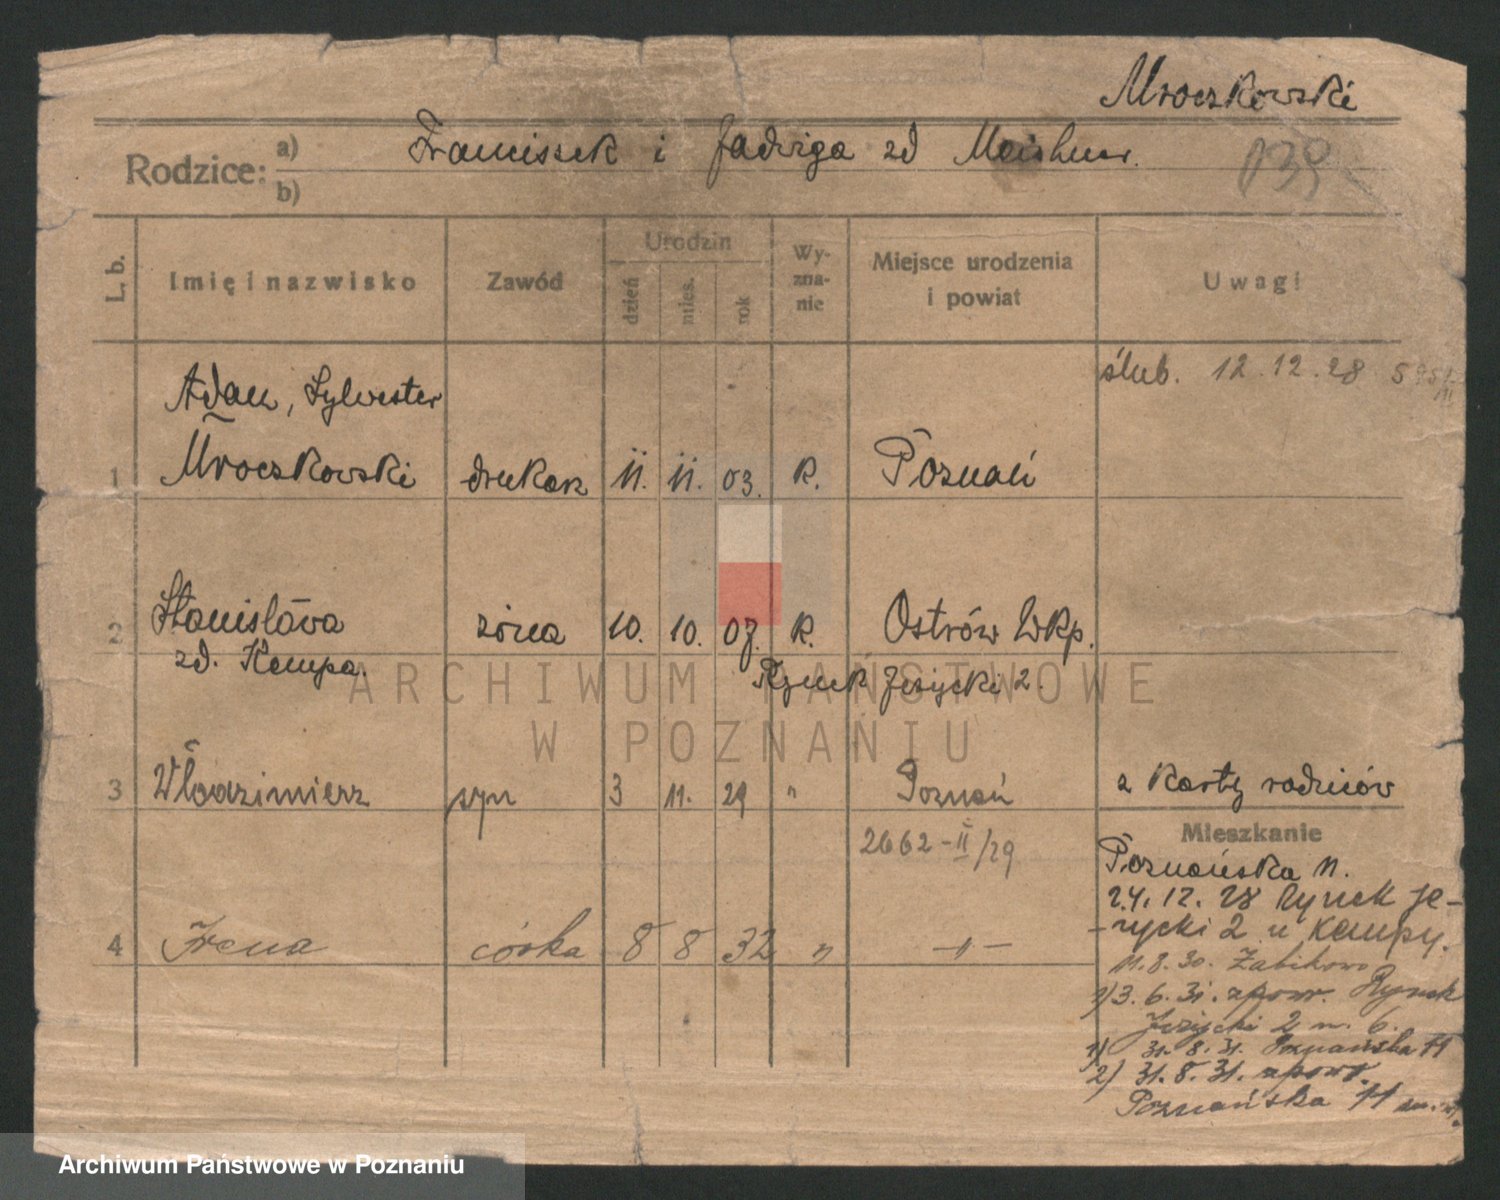 Mroczkowski
Rodzice: a) b) Franciszek i Jadwiga zd
L. b. Imię i nazwisko Zawód Urodzin dzień mies. rok Wyznanie Miejsce urodzenia i powiat Uwagi
ślub. 12.12.28
1 Adam, Sylwester
Mroczkowski drukarz 11. 11. 03. R. Poznań
2 Stanisława żona 10. 10. 07. R. Ostrów Wkp.
zd. Kempa. Rynek Jeżycki 2.
3 Włodzimierz syn 3 11. 29 " Poznań z karty rodziców
2662-II/29
4 Irena córka 8 8 32 " -"-
Mieszkanie
Poznańska 11.
24.12.28 Rynek Je-
-życki 2 u Kempy.
11.8.30. Żabikowo
1) 3.6.31. zpow. Rynek
Jeżycki 2 m. 6.
1) 31.8.31. Poznańska 11
2) 31.8.31. zpow.
Poznańska 11
ARCHIWUM PAŃSTWOWE
W POZNANIU
Archiwum Państwowe w Poznaniu